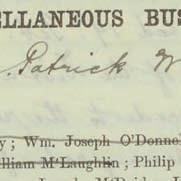 ELLANEOUS BUS
. Patrick W
y ; Wm. Joseph O'Donne
illiam M'Laughlin ; Philip